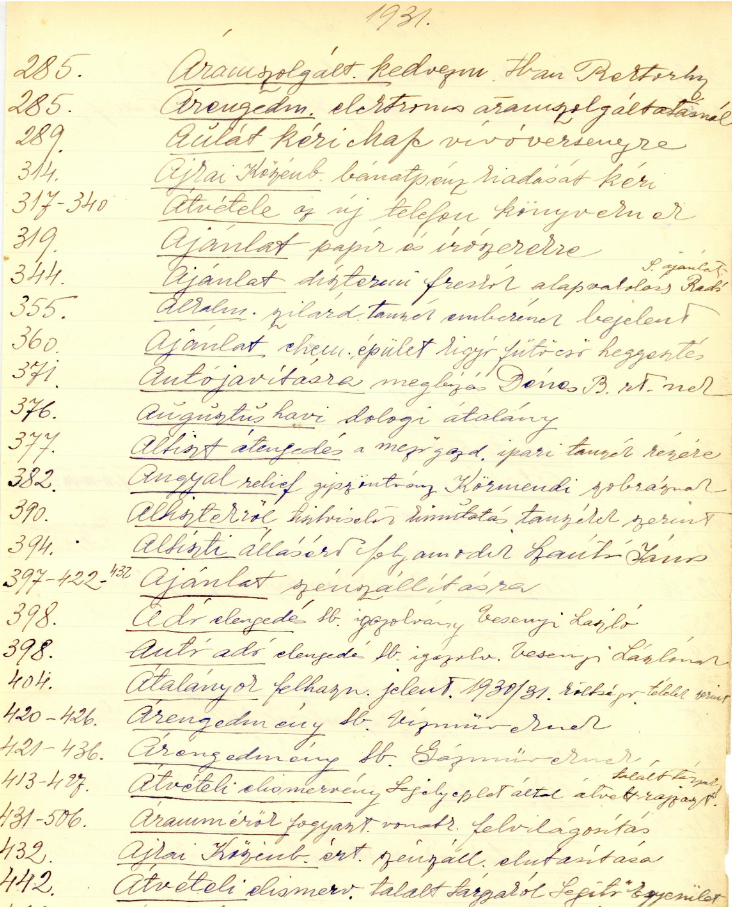 1931.
285. Áramszolgált. kedvezm.
285. Árengedm. elektromos áramszolgáltatásnál
289. Aulát kéri Mafc vívóversenyre
314. Ajkai Kőszénb. bánatpénz kiadását kéri
317-340 Átvétele az új telefon könyveknek
319. Ajánlat papír és írószerekre
S. ajánlat
344. Ajánlat dísztermi freskók Radó
355. Alkalm. szilárd. tanszék emberének bejelent
360. Ajánlat chem. épület fűtőcső heggesztés
371. Autójavításra megbízás Dénes B. rt.-nek
376. Augusztus havi dologi átalány
377. Altiszt átengedés a mezőgazd. ipari tanszék részére
382. Angyal relief gipszöntvény Körmendi szobrásznak
390. Altisztekről tisztviselők kimutatás tanszékek szerint
394. Altiszti állásért folyamodik János
397-422-432 Ajánlat szénszállításra
398. Adó elengedés ib. igazolvány Vesenyi László
398. Autó adó elengedés ib. igazolv. Vesenyi Lászlónak
404. Átalányok felhazn. jelent. 1930/31. költségv. tételek szerint
420-426. Árengedmény ib. Vízműveknek
421-436. Árengedmény ib. Gázműveknek
talált tárgyak
413-427. Átvételi elismervény Segélyegylet által átvett
431-506. Árammérők fogyaszt. vonatk. felvilágosítás
432. Ajkai Kőszénb. ért. szénszáll. elutasítása
442. Átvételi elismerv. talált tárgyakról Segítő Egyesület